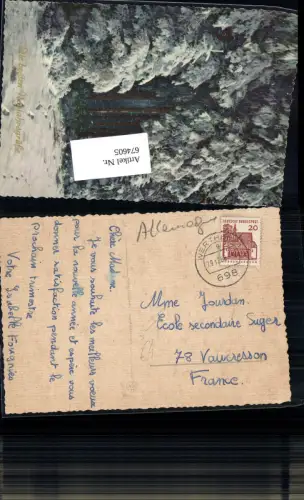 Artikel Nr.
674605
Allemagne
Chère Madame,
Je vous souhaite les meilleurs voeux
pour la nouvelle année et espère vous
donner satisfaction pendant le
prochain trimestre.
Votre Isabelle
DEUTSCHE BUNDESPOST
20
WERTHEIM
698
Mme Jourdan.
Ecole secondaire Suger
78 Vaucresson
France.